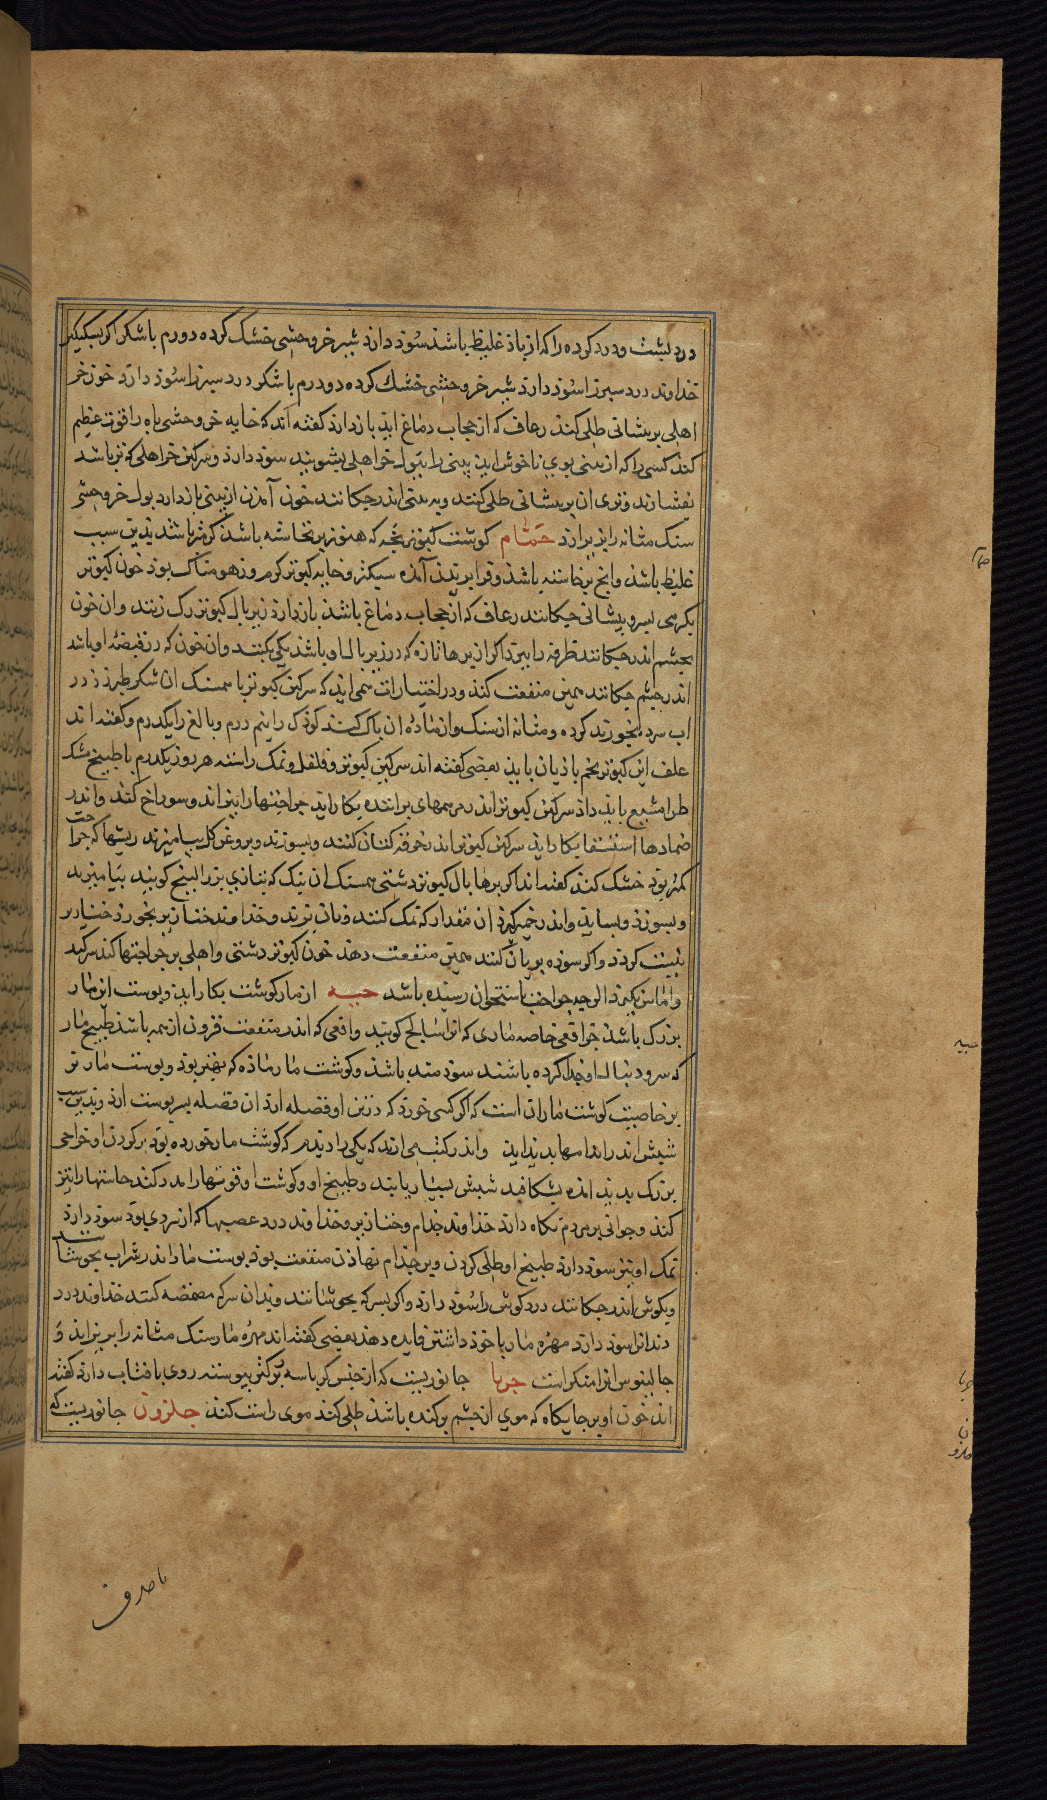 درد پشت و درد کرده را که از باذ غلیظ باشد سوذ دارذ شیر خر وحشی خشک کرده دو درم با شکر اگر بنکیکیر
خذاوند درد سپرز را سوذ دارذ شیر خر وحشی خشک کرده دو درم با شکر درد سپرز را سوذ دارذ خون خر
اهلی بر پیشانی طلی کنند رعاف که از حجاب دماغ ایذ باز دارذ کفته اند که خایه خر وحشی باه را قوت عظیم
کند کسی را که از بینی بوی ناخوش ایذ بینی را ببول خر اهلی بشویند سوذ دارذ و سرکین خر اهلی که تر باشد
بفشارند و بوی ان بر پیشانی طلی کنند و به بینی اندر چکانند خون آمدن از بینی باز دارد بول خر وحشی
سنک مثانه را بریزارذ حمام کوشت کبوتر بچه که هنوز پر نخاسته باشد کرمتر باشد بذین سبب
غلیظ باشذ وانچ بر خاسته باشذ و فرا پریذن آمذه سبکتر و خایه کبوتر کرم و زهومتناک بوذ خون کبوتر
بکرمی بسر و پیشانی چکانند رعاف که از حجاب دماغ باشذ باز دارذ زیر بال کبوتر رک زنند و ان خون
بچشم اندر چکانند طرفه را ببرد اکر از پرها تازه که در زیر بال او باشذ یکی بکنند و ان خون که در قبضه او باشد
اندر چشم چکانند همین منفعت کند و در اختیارات می ایذ که سرکین کبوتر با همسنک ان شکر طبرزذ در
اب سرد بخورند کرده و مثانه از سنک و از ماده ان پاک کند کوذک را نیم درم و بالغ را یکدرم و کفته اند
علف این کبوتر تخم باذیان بایذ بعضی کفته اند سرکین کبوتر و فلفل و نمک راسته هر روز یکدرم با طبیخ مشک
طرامشیع بایذ داذ سرکین کبوتر اندر مرهمهای براننده بکار ایذ جراحتها را بپزاند و سوراخ کند و اندر
ضمادها استسقا بکار ایذ سرکین کبوتر اندر خرقه کتان کنند و بسوزند و بروغن کل بیامیزند ریشها که جراحت
کمتر بوذ خشک کند کفته اند اکر پرها بال کبوتر دشتی همسنک ان نمک که بتازی بزر البنج کویند بیامیزند
و بسوزند و بسایند و اندر خمیر کیرذ ان مقدار که نمک کنند و نان پزند و خذاوند خنازیر بخورد خنازیر
نیست کردد و اکر سوذه بریان کنند همین منفعت دهذ خون کبوتر دشتی و اهلی بر جراحتها کند سرکید
و اماس بکیرد اکر چه جراحت باستخوان رسیده باشد حیه از مار کوشت بکار ایذ و پوست ان مار
بزرک باشذ جز افعی خاصه ماری که انرا سالخ کویند و افعی که اندر منفعت فزون از همه باشذ طبیخ مار
که سر و دنبال او جدا کرده باشند سوذ مند باشذ و کوشت مار ماده که بهتر بوذ و پوست مار نر
بر خاصیت کوشت ماران است که اکر کسی خورد که در تن او فضله ارذ ان فضله بسر پوست ارذ و بذین سبب
شپش اندر اندامها پدیذ ایذ واندر کتب می ارند که یکی را دیذم که کوشت مار خورده بوذ بر کردن او خراجی
بزرک پدیذ امذه بشکافند شپش بسیار یابند و طبیخ او و کوشت او قوتها را مدد کند حاستها را تیز
کند و جوانی بر مردم نکاه دارد خذاوند جذام و خنازیر و خذاوند درد عصبها که از سردی بوذ سوذ دارذ
نمک او نیز سوذ دارذ طبیخ او طلی کردن و بر جذام نهاذن منفعت بوذ پوست مار اندر شراب بجوشانند
و بکوش اندر چکانند درد کوش را سوذ دارذ و اکر بسرکه بجوشانند و بذان سرکه مضمضه کنند خذاوند درد
دندان سوذ دارد مهره مار با خوذ داشتن فایده دهذ بعضی کفته اند مهره مار سنک مثانه را بریزاند و
جالینوس انرا منکر است حربا جانوریست که از جنس کرباسه بزرکتر پیوسته روی بافتاب دارد کفته
اند خون او بر جایکاه که موی از چشم برکنده باشذ طلی کنند موی راست کند حلزون جانوریست که
حمام
حیه
حربا
حلزون
با صدف